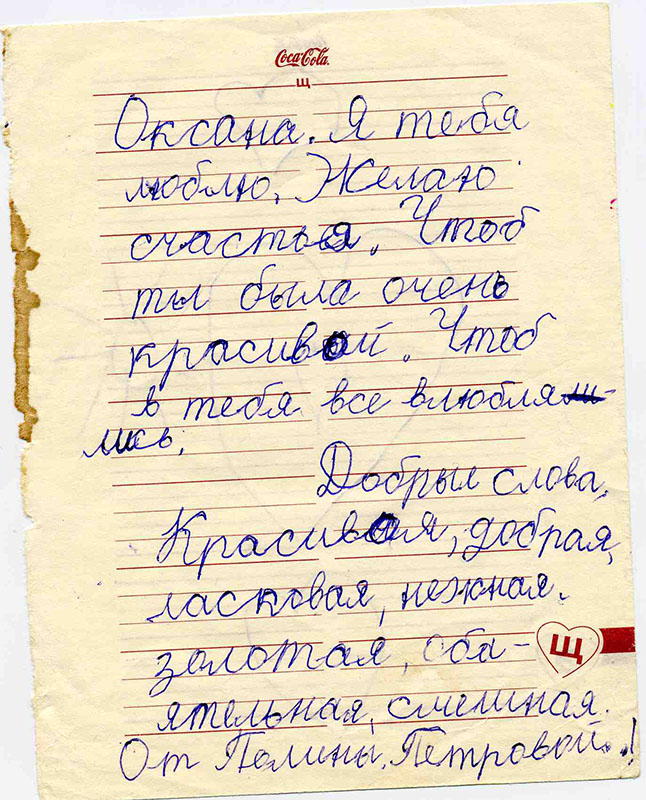 Coca-Cola
Щ
Оксана. Я тебя
люблю. Желаю
счастья. Чтоб
ты была очень
красивой. Чтоб
в тебя все влюбля
лись.
Добрые слова.
Красивая, добрая,
ласковая, нежная.
золотая, оба-
Щ
ятельная, смешная.
От Полины. Петровой..!